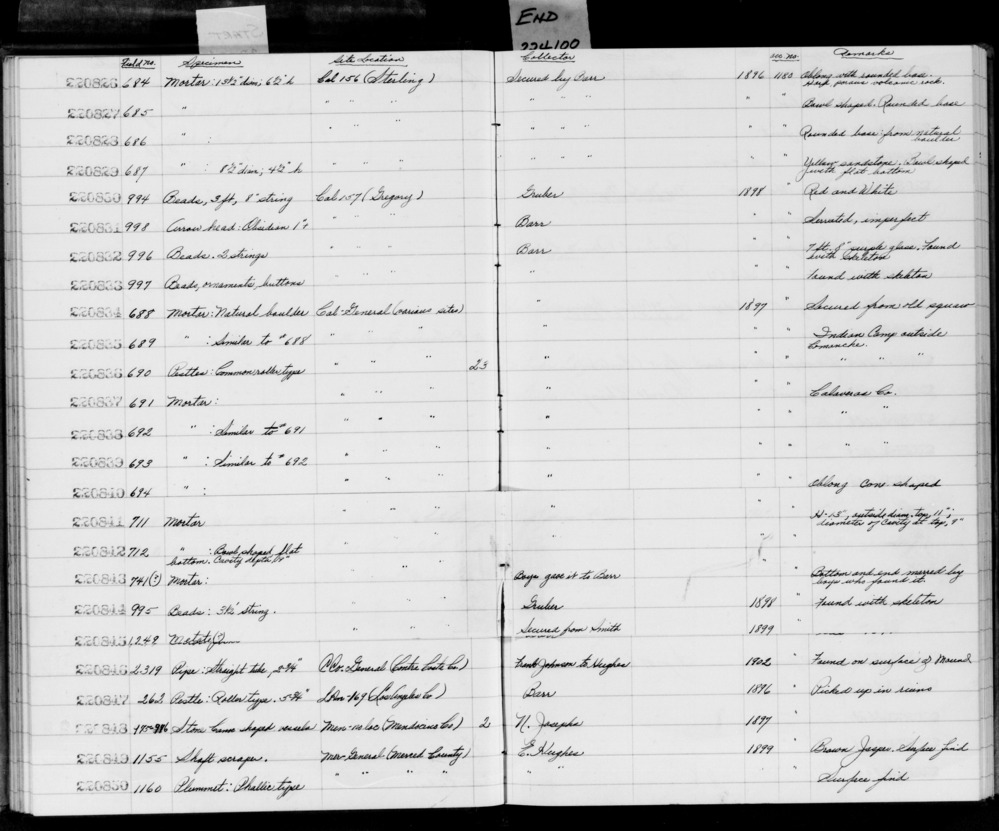 START
END
224100
Field no. Specimen Site Location Collector acc. no. Remarks
220826 684 Mortar: 13½" dim; 6½" h Cal 156 (Sterling) Secured by Barr 1896 1180 Oblong with rounded base.
Hard porous volcanic rock.
220827 685 " " " " " " " " " Bowl shaped. Rounded base
220828 686 " : " " " " " " " " Rounded base: from natural
boulder
220829 687 " : 8½" dim; 4½" h " " " " " " " " Yellow sandstone. Bowl shaped
with flat bottom
220830 994 Beads, 3 ft, 8" string Cal 157 (Gregory) Gruber 1898 " Red and White
220831 998 Arrow head: Obsidian 1"+ " " " Barr " " Serrated, imperfect
220832 996 Beads. 2 strings " " " Barr " " 7 ft. 8" purple glass. Found
with skeleton
220833 997 Beads, ornaments, buttons " " " " " " Found with skeleton
220834 688 Mortar: Natural boulder Cal-General (various sites) " 1897 " Secured from old squaw
220835 689 " : Similar to #688 " " " " " " Indian Camp outside
Comanche.
220836 690 Pestles: Common roller type " " " 23 " " " " " "
220837 691 Mortar: " " " " " " Calaveras Co.
220838 692 " : Similar to #691 " " " " " " " "
220839 693 " : Similar to #692 " " " " " " " "
220840 694 " : " " " " " " Oblong Cone shaped
220841 711 Mortar " " " " " " H-15", outside diam. top, 11";
diameter of cavity at top, 9"
220842 712 " : Bowl shaped, flat " " " " " "
bottom. Cavity depth,
220843 741(?) Mortar: " " " Boys gave it to Barr " " Bottom and end marred by
boys who found it.
220844 995 Beads: 3½' string. " " " Gruber 1898 " Found with skeleton
220845 1249 Metate(?) " " " Secured from Smith 1899 "
220846 2319 Pipe: Straight tube, 2-¾" CCo. General (Contra Costa Co.) Frank Johnson to Hughes 1902 " Found on surface of Mound
220847 262 Pestle: Roller type. 5-¾" LAn-169 (Los Angeles Co) Barr 1896 " Picked up in ruins
220848 175-986 Stone Canoe shaped vessels Men-no loc (Mendocino Co) 2 N. Josephs 1897 "
220849 1155 Shaft scraper. Mer-General (Merced County) E. Hughes 1899 " Brown Jasper. Surface find
220850 1160 Plummet: Phallic type " " " " " " Surface find